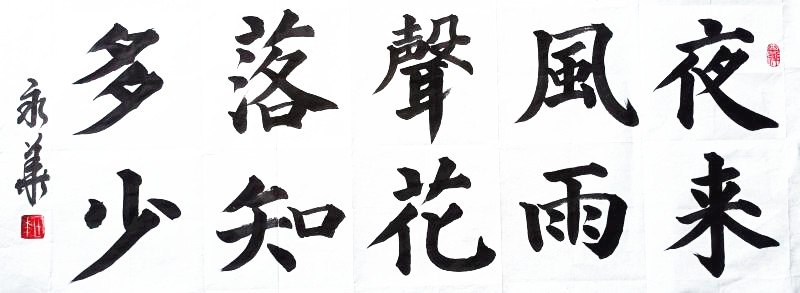 夜来
風雨
聲花
落知
多少
永華